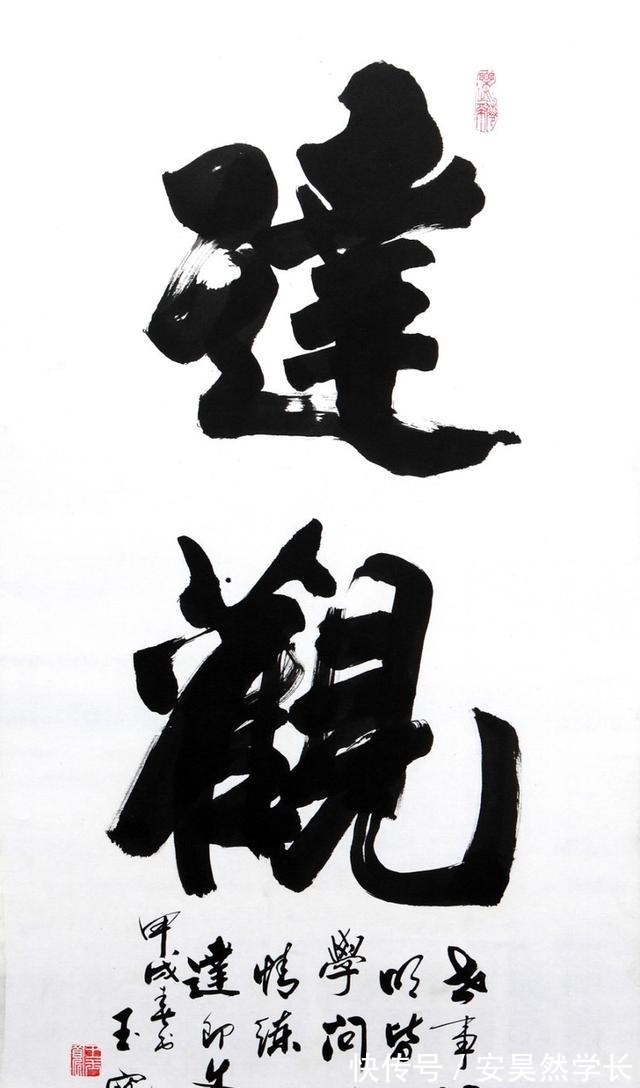 達
觀
世事
明皆
學問
情練
達即
甲戌春
玉
快传号／安昊然学长